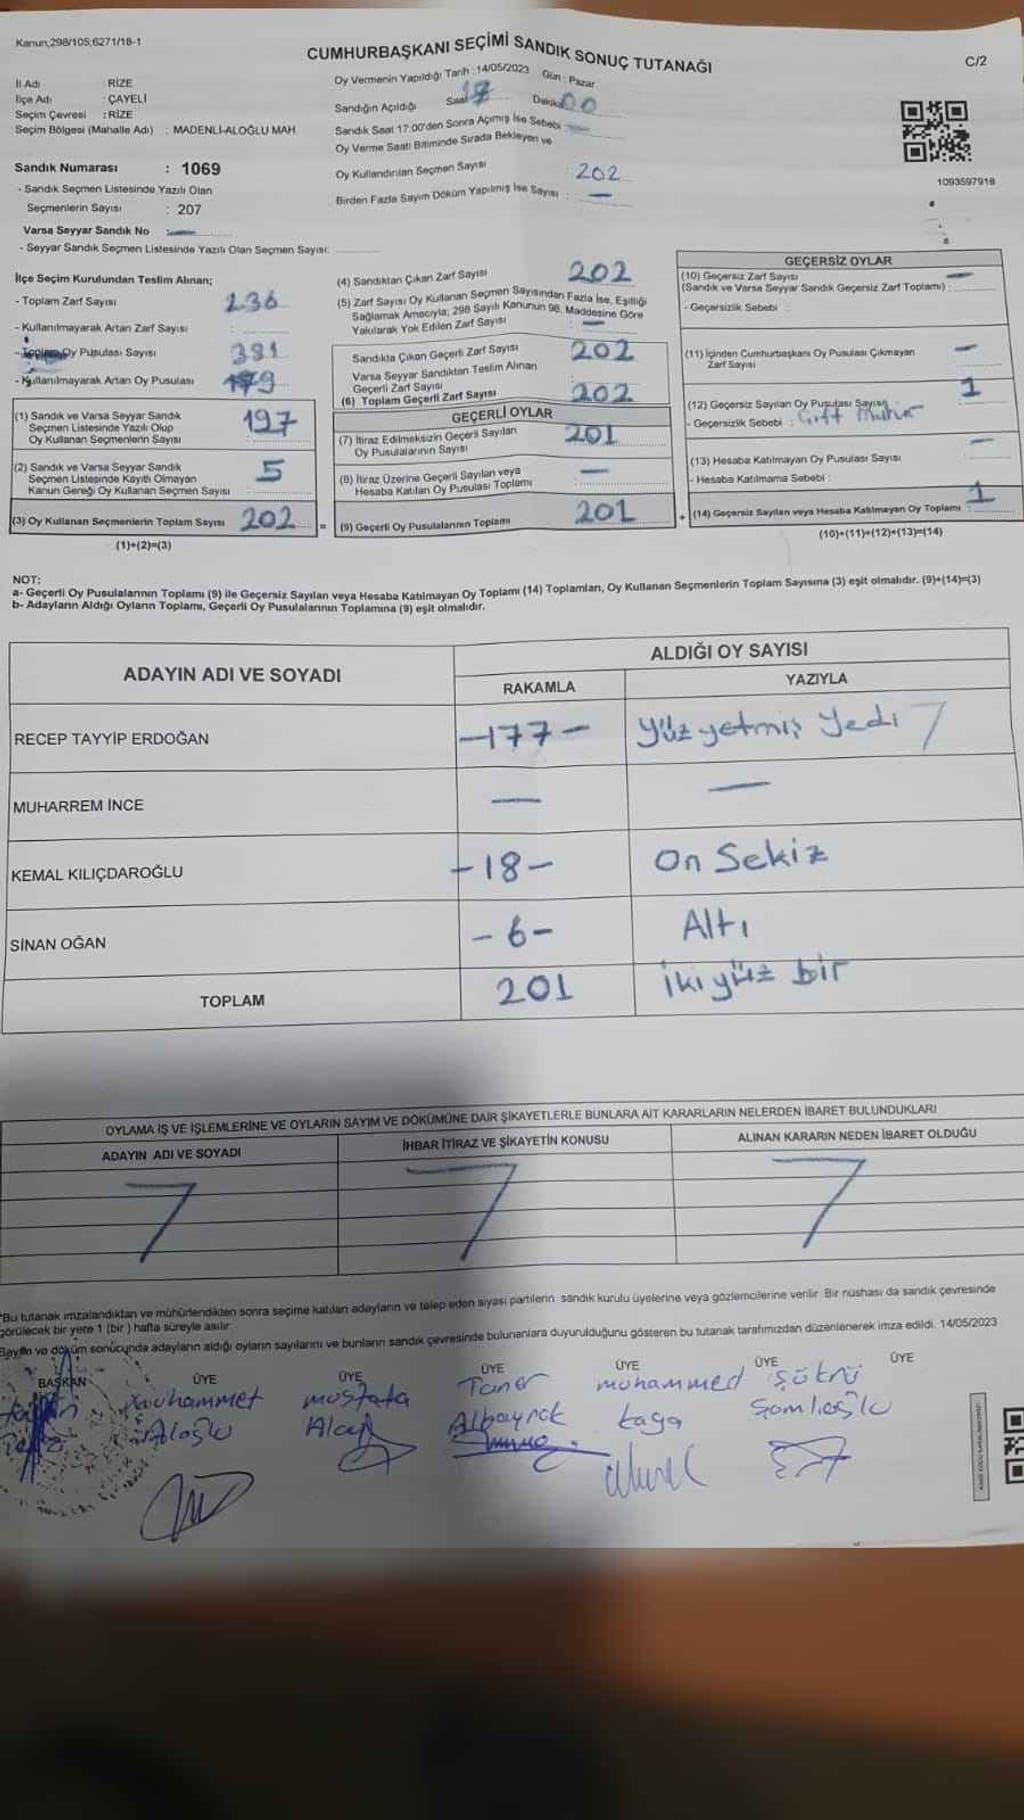 Kanun;298/105;6271/18-1
CUMHURBAŞKANI SEÇİMİ SANDIK SONUÇ TUTANAĞI
C/2
İl Adı : RİZE
İlçe Adı : ÇAYELİ
Seçim Çevresi : RİZE
Seçim Bölgesi (Mahalle Adı) : MADENLİ-ALOĞLU MAH
Sandık Numarası : 1069
- Sandık Seçmen Listesinde Yazılı Olan
Seçmenlerin Sayısı : 207
Varsa Seyyar Sandık No : —
- Seyyar Sandık Seçmen Listesinde Yazılı Olan Seçmen Sayısı:
Oy Vermenin Yapıldığı Tarih : 14/05/2023 Gün : Pazar
Sandığın Açıldığı Saat Dakika 00
Sandık Saat 17:00'den Sonra Açımış İse Sebebi —
Oy Verme Saati Bitiminde Sırada Bekleyen ve
Oy Kullandırılan Seçmen Sayısı 202
Birden Fazla Sayım Döküm Yapılmış İse Sayısı : —
1093597918
İlçe Seçim Kurulundan Teslim Alınan;
- Toplam Zarf Sayısı 236
- Kullanılmayarak Artan Zarf Sayısı
- Toplam Oy Pusulası Sayısı 381
- Kullanılmayarak Artan Oy Pusulası 179
(1) Sandık ve Varsa Seyyar Sandık
Seçmen Listesinde Yazılı Olup
Oy Kullanan Seçmenlerin Sayısı 197
(2) Sandık ve Varsa Seyyar Sandık
Seçmen Listesinde Kayıtlı Olmayan
Kanun Gereği Oy Kullanan Seçmen Sayısı 5
(3) Oy Kullanan Seçmenlerin Toplam Sayısı 202 =
(1)+(2)=(3)
(4) Sandıktan Çıkan Zarf Sayısı 202
(5) Zarf Sayısı Oy Kullanan Seçmen Sayısından Fazla İse, Eşitliği
Sağlamak Amacıyla; 298 Sayılı Kanunun 98. Maddesine Göre
Yakılarak Yok Edilen Zarf Sayısı —
Sandıkta Çıkan Geçerli Zarf Sayısı 202
Varsa Seyyar Sandıktan Teslim Alınan
Geçerli Zarf Sayısı
(6) Toplam Geçerli Zarf Sayısı 202
GEÇERLİ OYLAR
(7) İtiraz Edilmeksizin Geçerli Sayılan
Oy Pusulalarının Sayısı 201
(8) İtiraz Üzerine Geçerli Sayılan veya
Hesaba Katılan Oy Pusulası Toplamı —
(9) Geçerli Oy Pusulalarının Toplamı 201 +
GEÇERSİZ OYLAR
(10) Geçersiz Zarf Sayısı
(Sandık ve Varsa Seyyar Sandık Geçersiz Zarf Toplamı) : —
- Geçersizlik Sebebi :
(11) İçinden Cumhurbaşkanı Oy Pusulası Çıkmayan
Zarf Sayısı —
(12) Geçersiz Sayılan Oy Pusulası Sayısı 1
- Geçersizlik Sebebi : Çift Mühür
(13) Hesaba Katılmayan Oy Pusulası Sayısı —
- Hesaba Katılmama Sebebi :
(14) Geçersiz Sayılan veya Hesaba Katılmayan Oy Toplamı : 1
(10)+(11)+(12)+(13)=(14)
NOT:
a- Geçerli Oy Pusulalarının Toplamı (9) ile Geçersiz Sayılan veya Hesaba Katılmayan Oy Toplamı (14) Toplamları, Oy Kullanan Seçmenlerin Toplam Sayısına (3) eşit olmalıdır. (9)+(14)=(3)
b- Adayların Aldığı Oyların Toplamı, Geçerli Oy Pusulalarının Toplamına (9) eşit olmalıdır.
ADAYIN ADI VE SOYADI
ALDIĞI OY SAYISI
RAKAMLA YAZIYLA
RECEP TAYYİP ERDOĞAN -177- Yüz yetmiş Yedi
MUHARREM İNCE — —
KEMAL KILIÇDAROĞLU -18- On Sekiz
SİNAN OĞAN -6- Altı
TOPLAM 201 İki yüz bir
OYLAMA İŞ VE İŞLEMLERİNE VE OYLARIN SAYIM VE DÖKÜMÜNE DAİR ŞİKAYETLERLE BUNLARA AİT KARARLARIN NELERDEN İBARET BULUNDUKLARI
ADAYIN ADI VE SOYADI İHBAR İTİRAZ VE ŞİKAYETİN KONUSU ALINAN KARARIN NEDEN İBARET OLDUĞU
*Bu tutanak imzalandıktan ve mühürlendikten sonra seçime katılan adayların ve talep eden siyasi partilerin sandık kurulu üyelerine veya gözlemcilerine verilir. Bir nüshası da sandık çevresinde
görülecek bir yere 1 (bir) hafta süreyle asılır.
Sayım ve döküm sonucunda adayların aldığı oyların sayılarını ve bunların sandık çevresinde bulunanlara duyurulduğunu gösteren bu tutanak tarafımızdan düzenlenerek imza edildi. 14/05/2023
BAŞKAN ÜYE ÜYE ÜYE ÜYE ÜYE ÜYE
Muhammet Mustafa Taner Muhammed Şükrü
Aloğlu Albayrak Kaya